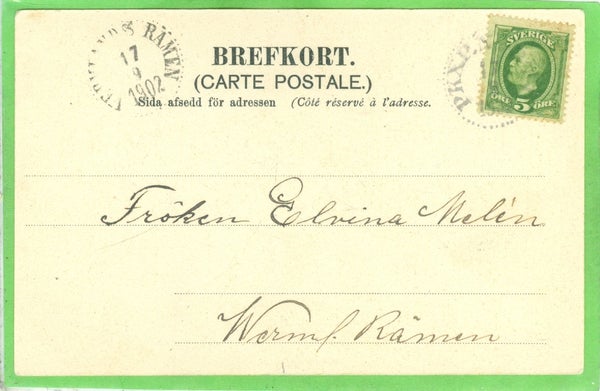 VERMLANDS RÄMEN
17
9
1902
BREFKORT.
(CARTE POSTALE.)
Sida afsedd för adressen (Côté réservé à l'adresse.
SVERIGE
ÖRE 5 ÖRE
Fröken Elvina Melén
Werml. Rämen